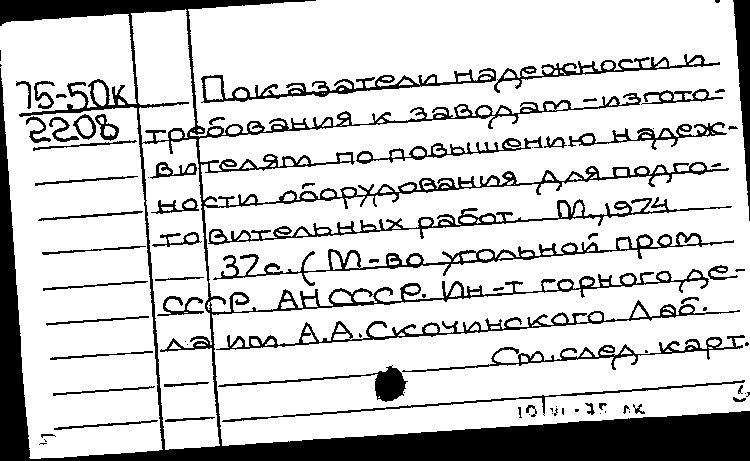 75-50к
2208
Показатели надежности и
требования к заводам-изгото-
вителям по повышению надеж-
ности оборудования для подго-
товительных работ. М., 1974
37с. (М-во угольной пром
СССР. АН СССР. Ин-т горного де-
ла им. А.А.Скочинского. Лаб.
См. след. карт.
10/VI-75 лк